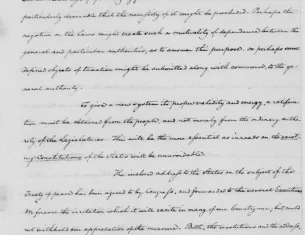 particularly desirable that the necessity of it might be precluded. Perhaps the
negative on the laws might create such a mutuality of dependence between the
general and particular authorities, as to answer this purpose, or perhaps some
defined objects of taxation might be submitted along with commerce, to the ge
neral authority.
To give a new system its proper validity and energy, a ratifica
must be obtained from the people, and not merely from the ordinary autho
rity of the Legislatures. This will be the more essential as inroads on the exist
ing Constitutions of the States will be unavoidable.
The inclosed address to the States on the subject of the
Treaty of peace has been agreed to by Congress, and forwarded to the several Executives
We foresee the irritation which it will excite in many of our Countrymen, but could
not withhold our approbation of the measure. Both, the resolutions and the address,